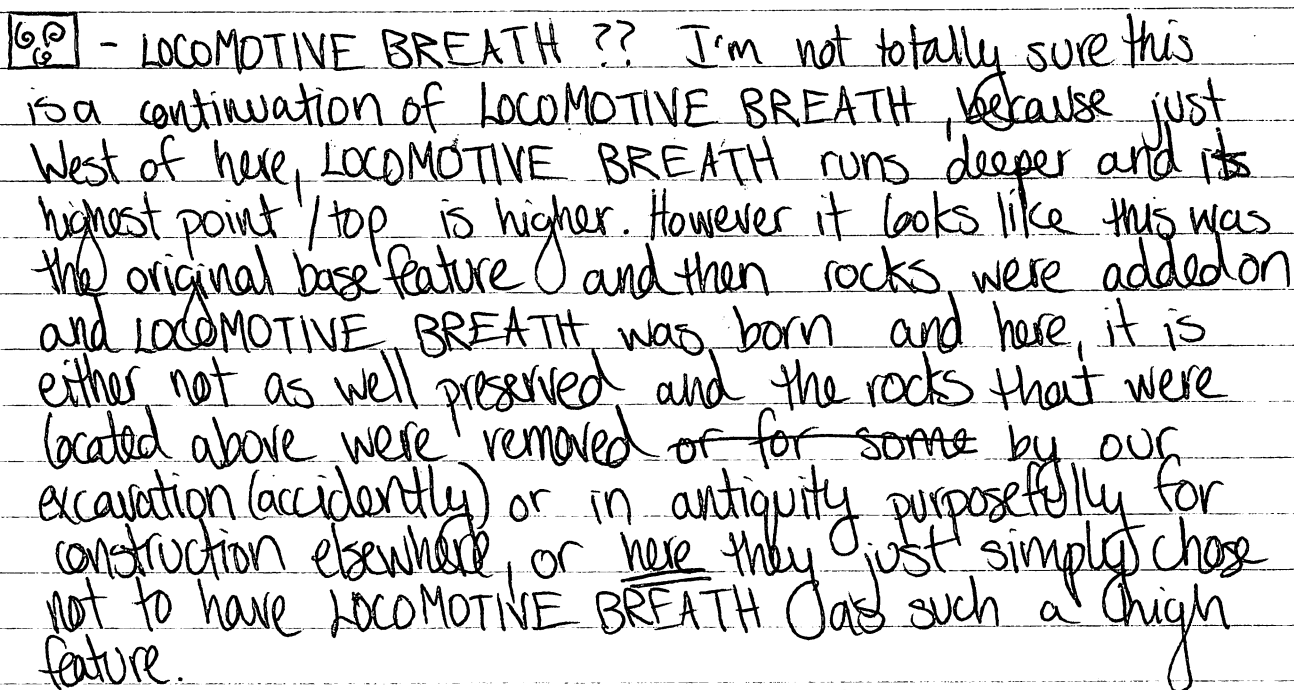 - LOCOMOTIVE BREATH ?? I'm not totally sure this
is a continuation of LOCOMOTIVE BREATH, because just
West of here, LOCOMOTIVE BREATH runs deeper and its
highest point/top is higher. However it looks like this was
the original base feature and then rocks were added on
and LOCOMOTIVE BREATH was born and here, it is
either not as well preserved and the rocks that were
located above were removed or for some by our
excavation (accidently) or in antiquity purposefully for
construction elsewhere, or here they just simply chose
not to have LOCOMOTIVE BREATH as such a high
feature.